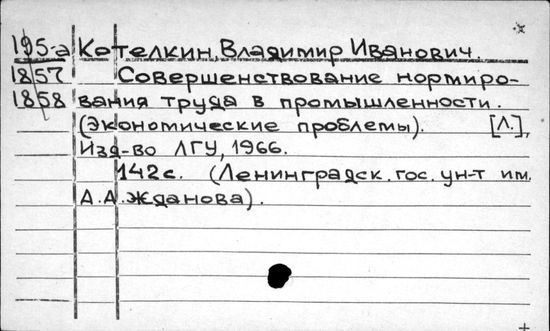 195-а Котелкин, Владимир Иванович.
1857 Совершенствование нормиро-
1858 вания труда в промышленности.
(Экономические проблемы). [Л.],
Изд-во ЛГУ, 1966.
142с. (Ленинградск. гос. ун-т им.
А.А. Жданова).